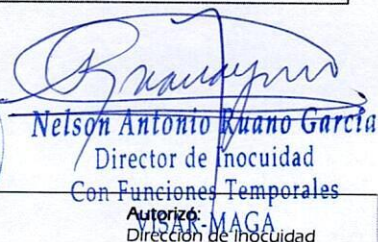 Nelson Antonio Ruano García
Director de Inocuidad
Con Funciones Temporales
Autorizó:
VISAR-MAGA
Dirección de Inocuidad